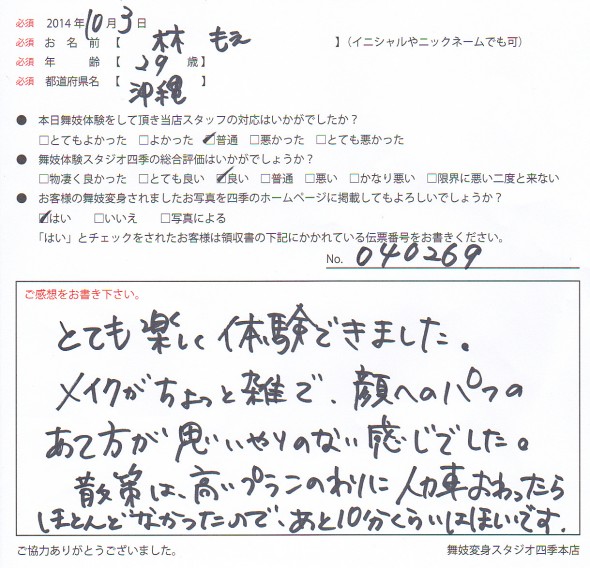 必須 2014年10月3日
必須 お名前【 林 もえ 】（イニシャルやニックネームでも可）
必須 年齢【 29 歳】
必須 都道府県名【 沖縄 】
● 本日舞妓体験をして頂き当店スタッフの対応はいかがでしたか？
□とてもよかった □よかった ☑普通 □悪かった □とても悪かった
● 舞妓体験スタジオ四季の総合評価はいかがでしょうか？
□物凄く良かった □とても良い ☑良い □普通 □悪い □かなり悪い □限界に悪い二度と来ない
● お客様の舞妓変身されましたお写真を四季のホームページに掲載してもよろしいでしょうか？
☑はい □いいえ □写真による
「はい」とチェックをされたお客様は領収書の下記にかかれている伝票番号をお書きください。
No. 040269
ご感想をお書き下さい。
とても楽しく体験できました。
メイクがちょっと雑で、顔へのパフの
あて方が思いやりのない感じでした。
散策は、高いプランのわりに人力車おわったら
ほとんどなかったので、あと10分くらいはほしいです。
ご協力ありがとうございました。
舞妓変身スタジオ四季本店